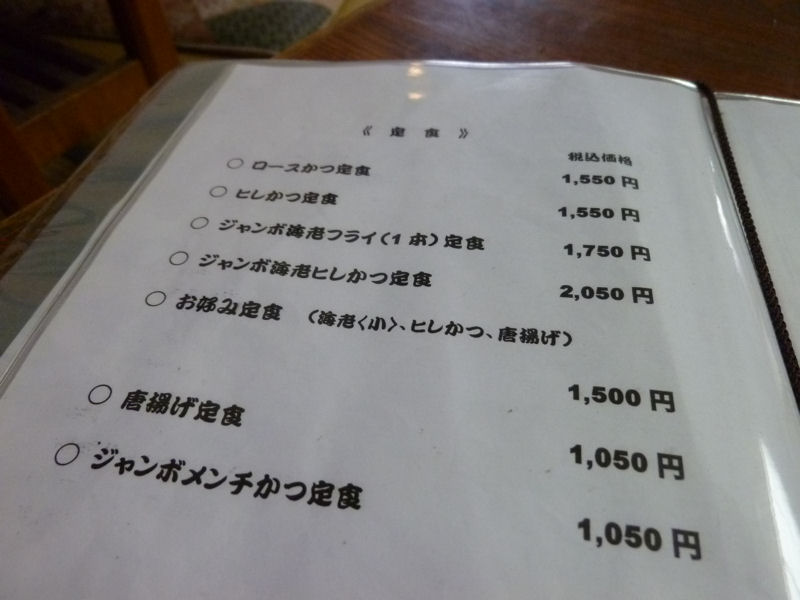 《 定 食 》
税込価格
○ ロースかつ定食 1,550 円
○ ヒレかつ定食 1,550 円
○ ジャンボ海老フライ(1 本)定食 1,750 円
○ ジャンボ海老ヒレかつ定食 2,050 円
○ お好み定食 (海老〈小〉、ヒレかつ、唐揚げ)
1,500 円
○ 唐揚げ定食 1,050 円
○ ジャンボメンチかつ定食 1,050 円